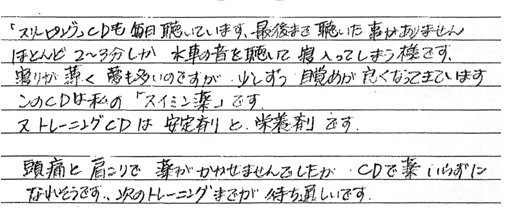 「スリーピング」CDも毎日聴いています、最後まで聴いた事がありません
ほとんど2〜3分しか 水車の音を聴いて寝入ってしまう様です、
眠りが薄く夢も多いのですが 少しずつ目覚めが良くなってきています
このCDは私の「スイミン薬」です.
又トレーニングCDは安定剤と、栄養剤です.
頭痛と肩こりで薬がかかせませんでしたが CDで薬いらずに
なれそうです、次のトレーニングまでが待ち遠しいです.